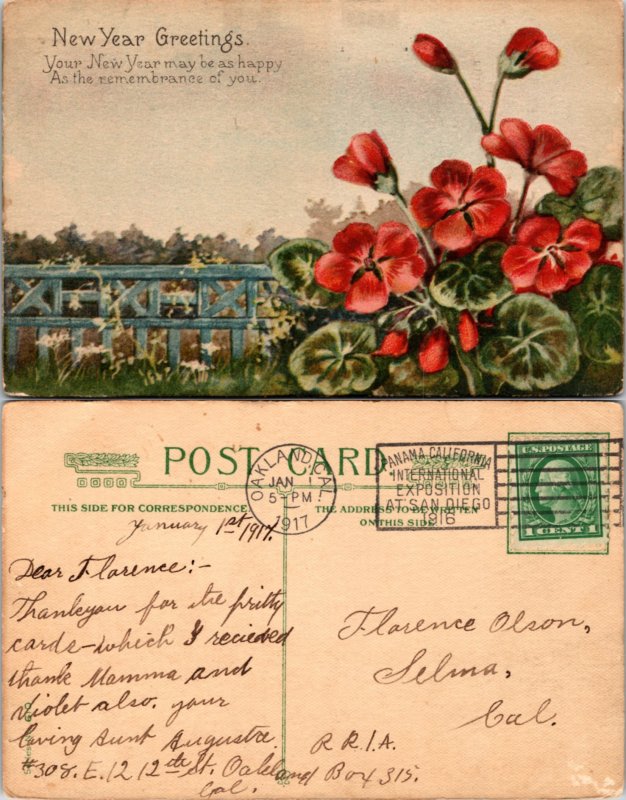 New Year Greetings.
Your New Year may be as happy
As the remembrance of you.
POST CARD
THIS SIDE FOR CORRESPONDENCE
THE ADDRESS TO BE WRITTEN
ON THIS SIDE
OAKLAND, CAL.
JAN
5-PM
1917
PANAMA CALIFORNIA
INTERNATIONAL
EXPOSITION
AT SAN DIEGO
1916
U.S. POSTAGE
1 CENT 1
January 1st 1917.
Dear Florence:-
Thankyou for the pritty
cards-which I recieved
thank Mamma and
Violet also. your
loving Aunt Augusta.
#308. E. 12 12th St. Oakland
Cal.
Florence Olson,
Selma,
Cal.
R.R.1.A.
Box 315.